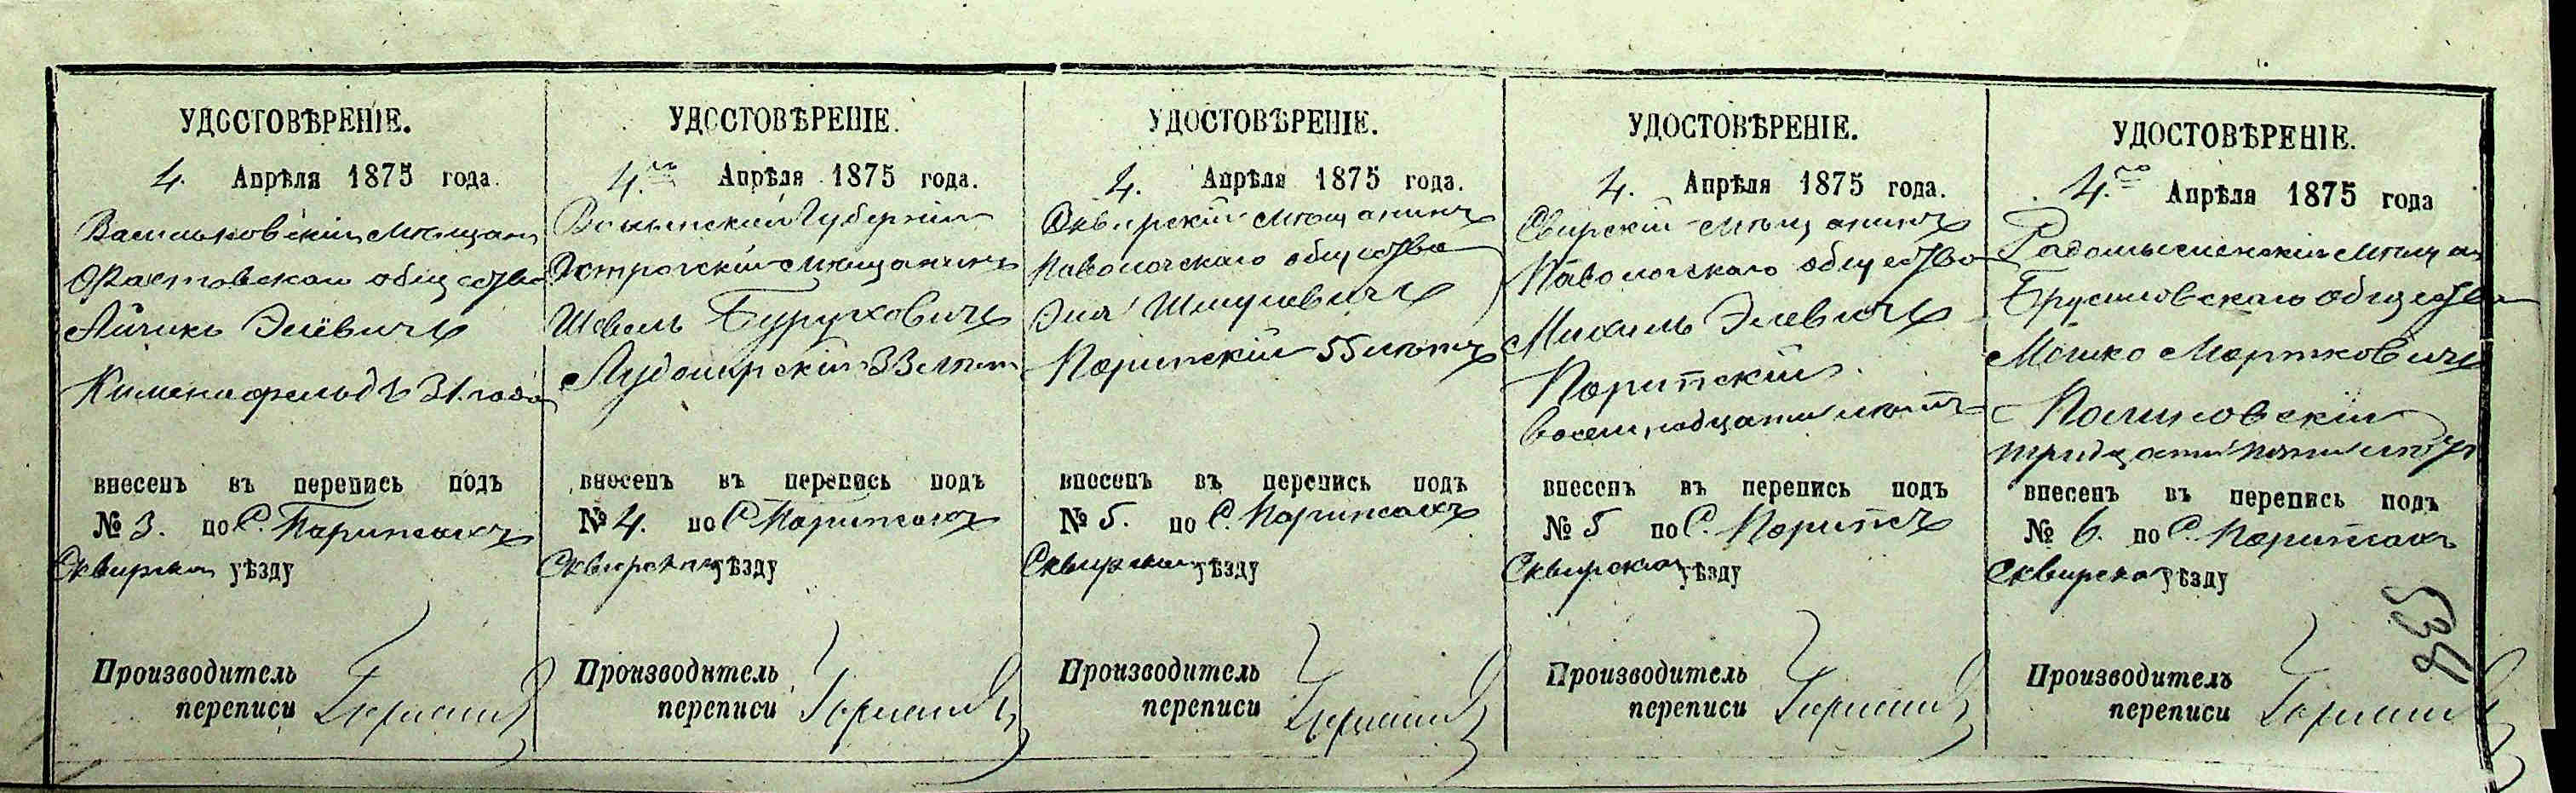 УДОСТОВѢРЕНІЕ.
4. Апрѣля 1875 года.
Васильковскій мѣщан
Фастовскаго общества
Айзикъ Элевичъ
31. года
внесенъ въ перепись подъ
№ 3. по С. Парипсахъ
Сквирском уѣзду
Производитель
переписи
УДОСТОВѢРЕНІЕ.
4.го Апрѣля 1875 года.
Волынской Губерніи
Острогскій мѣщанинъ
Шевель Бурухович
33 лѣтъ
внесенъ въ перепись подъ
№ 4. по С. Парипсахъ
Сквирском уѣзду
Производитель
переписи
УДОСТОВѢРЕНІЕ.
4. Апрѣля 1875 года.
Сквирскій мѣщанинъ
Паволочскаго общества
Эля Шмулевичъ
Парипскій 55 лѣтъ
внесенъ въ перепись подъ
№ 5. по С. Парипсахъ
Сквирском уѣзду
Производитель
переписи
УДОСТОВѢРЕНІЕ.
4. Апрѣля 1875 года.
Свирскій мѣщанинъ
Паволочскаго общества
Михель Элевичъ
Парипскій
восемнадцати лѣтъ
внесенъ въ перепись подъ
№ 5 по С. Парипсъ
Сквирском уѣзду
Производитель
переписи
УДОСТОВѢРЕНІЕ.
4.го Апрѣля 1875 года
Радомысленскій мѣщан
Брусиловскаго общества
Мошко Мортковичъ
Полиновскій
тридцати пяти лѣтъ
внесенъ въ перепись подъ
№ 6. по С. Парипсахъ
Сквирском уѣзду
Производитель
переписи
534